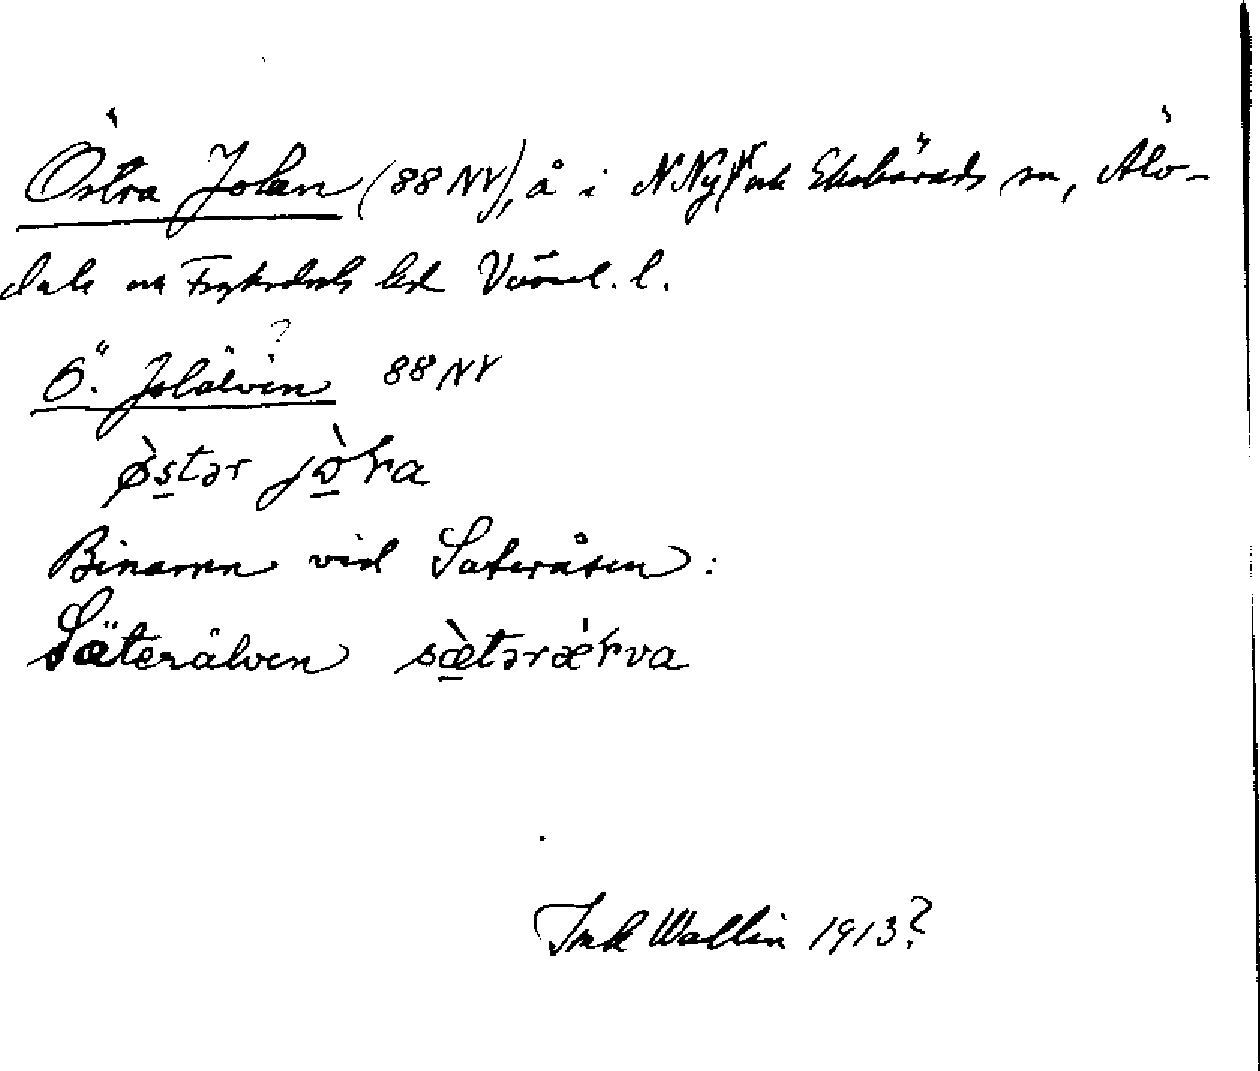 Östra Jolan (88 NV), å i N Ny och Ekshärads sn, Älv-
dals och Fryksdals hd Värml. l.
?
Ö. Jolälven 88 NV
ø̀s̲tər jò̲ɽa
Binamn vid Säteråsen:
Säterälven sæ̲̀tərǽɽva
Ink Wallin 1913?